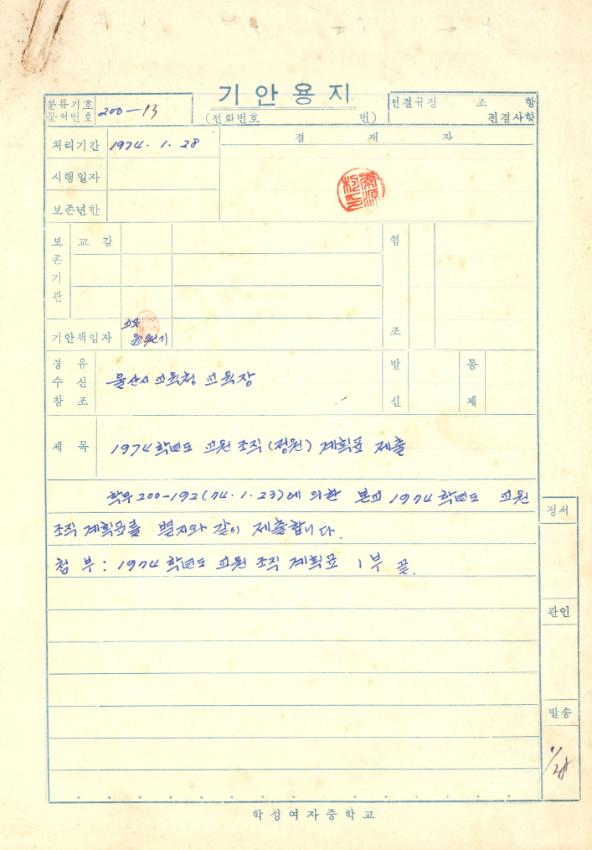 기안용지
분류기호
문서번호 200-13
(전화번호 번)
전결규정 조 항
전결사항
처리기간 1974. 1. 28
결 재 자
시행일자
보존년한
보존기관
교감
협조
기안책임자 교무
경유
수신 울산시 교육청 교육장
참조
발신
통제
제목 1974학년도 교원 조직 (정원) 계획표 제출
학무 200-192 (74. 1. 23)에 의한 본교 1974학년도 교원
조직 계획표를 별지와 같이 제출합니다.
첨부 : 1974 학년도 교원 조직 계획표 1부 끝.
정서
관인
발송
1/28
학성여자중학교